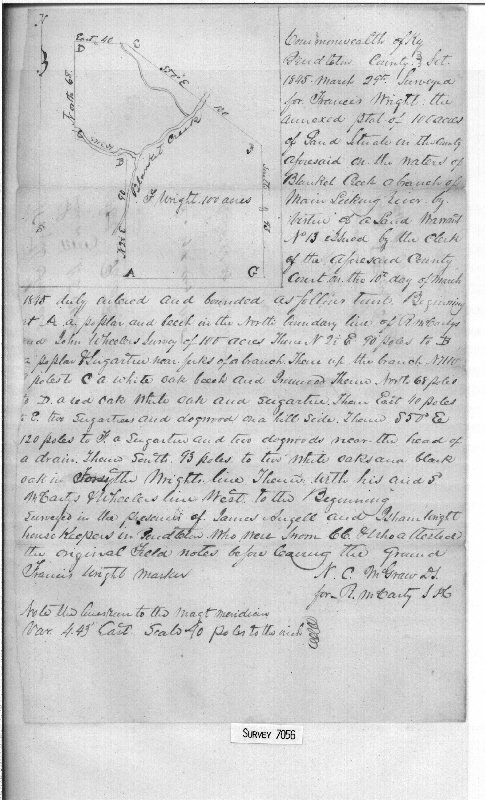 N
East 40
C
D
S 50° E
120
North 68
A
B
Blanket Creek
90
F. Wright. 100 acres
South 93
N 2½ E
A
G
Commonwealth of Ky
Pendleton County Sct.
1845 March 29th Surveyed
for Francis Wright the
annexed plat of 100 acres
of Land Situate in the county
aforesaid on the waters of
Blanket Creek a branch of
Main Licking River by
virtue of a Land Warrant
No 13 issued by the Clerk
of the aforesaid County
Court on the 10th day of March
1845 duly entered and bounded as follows to wit, Beginning
at A. a poplar and beech in the North boundary line of R. McCartys
and John Wheelers Survey of 100 acres Thence N 2½ E 90 poles to B
a poplar & Sugartree near forks of a branch Thence up the branch
poles to C a white oak beech and Ironwood Thence North 68 poles
to D. a red oak White oak and Sugartree. Thence East 40 poles
to E. two Sugartrees and dogwood on a hill side. Thence S 50° E
120 poles to F. a Sugartree and two dogwoods near the head of
a drain. Thence South 93 poles to two white oaks and black
oak in Forsythe Wrights line Thence with his and
McCartys & Wheelers line West to the Beginning
Surveyed in the presence of James Angell and Isham Wright
housekeepers in Pendleton who were sworn CC & who attested
the original Field notes before leaving the ground
Francis Wright marker
N. C. McGraw DS.
for R. McCarty S.PC
Note the American to the magt meridian
Var. 4.43' East Scale 40 poles to the inch
SURVEY 7056